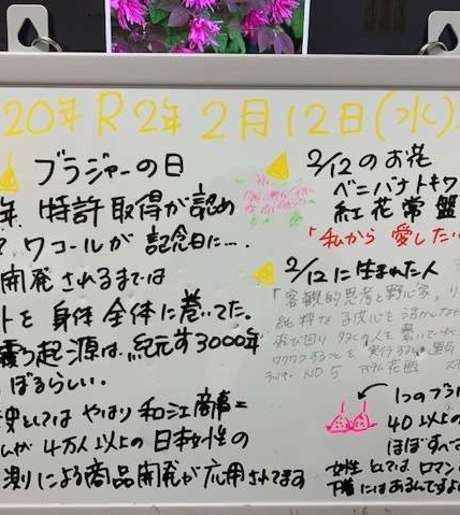 20年 R2年 2月12日(水)
ブラジャーの日
年 特許取得が認め
ワコールが 記念日に…
開発されるまでは
トを 身体 全体に巻いてた。
覆う起源は、紀元前3000年
ぼるらしい。
としては やはり 和江商事
が 4万人以上の 日本女性の
測による商品開発が応用されてます
2/12のお花
ベニバナトキワ
紅花常盤
「私から 愛したい
2/12に生まれた人
「客観的思考と野心家。
純粋な
ワクワクすることを 実行する
ラッキー NO 5
1つのブラ
40以上の
ほぼすべ
女性としては ロマン
下着にはあるんですよ